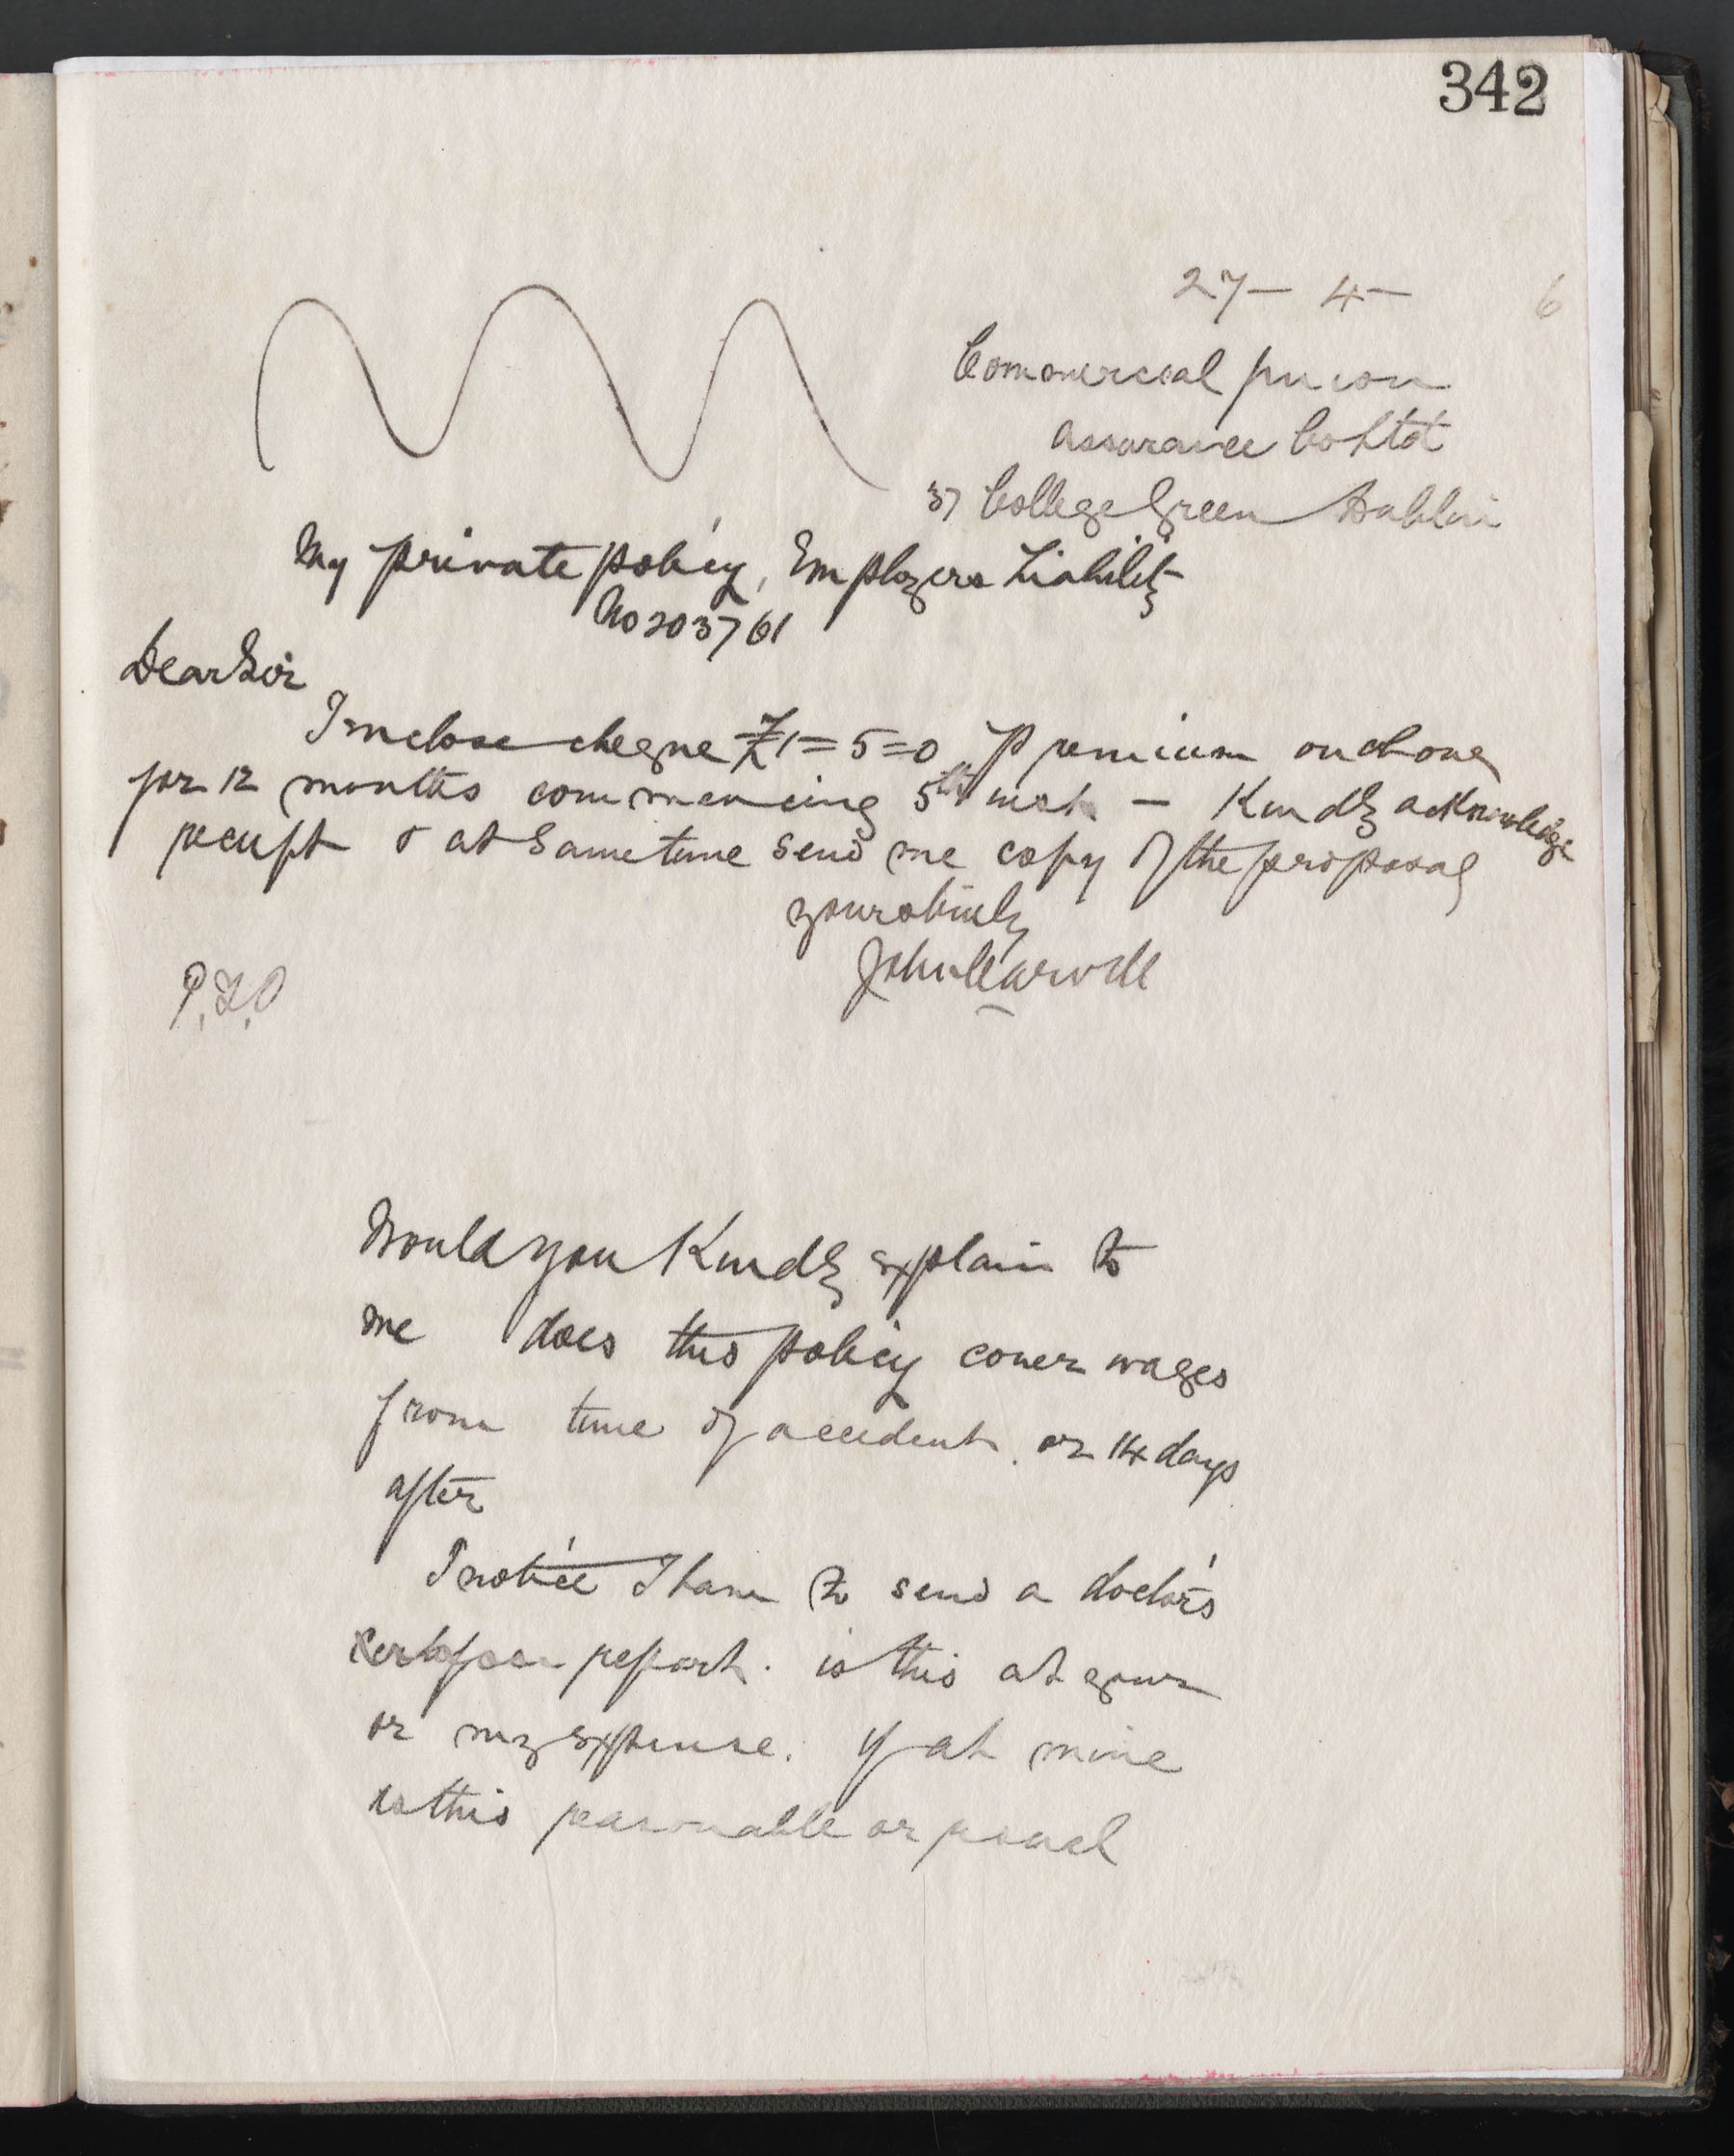 342
27 - 4 - 6
Commercial Union
Assurance Co Ltd
37 College Green Dublin
My private policy, Employers Liability
No 203761
Dear Sir
I enclose cheque £1=5=0 Premium on above
for 12 months commencing 5th inst - Kindly acknowledge
receipt & at same time send me copy of the proposal
yours truly
John Carvill
P.T.O
Would you Kindly explain to
me does this policy cover wages
from time of accident or 14 days
after
I notice I have to send a doctor's
report. is this at your
or my expense. If at mine
is this reasonable or usual